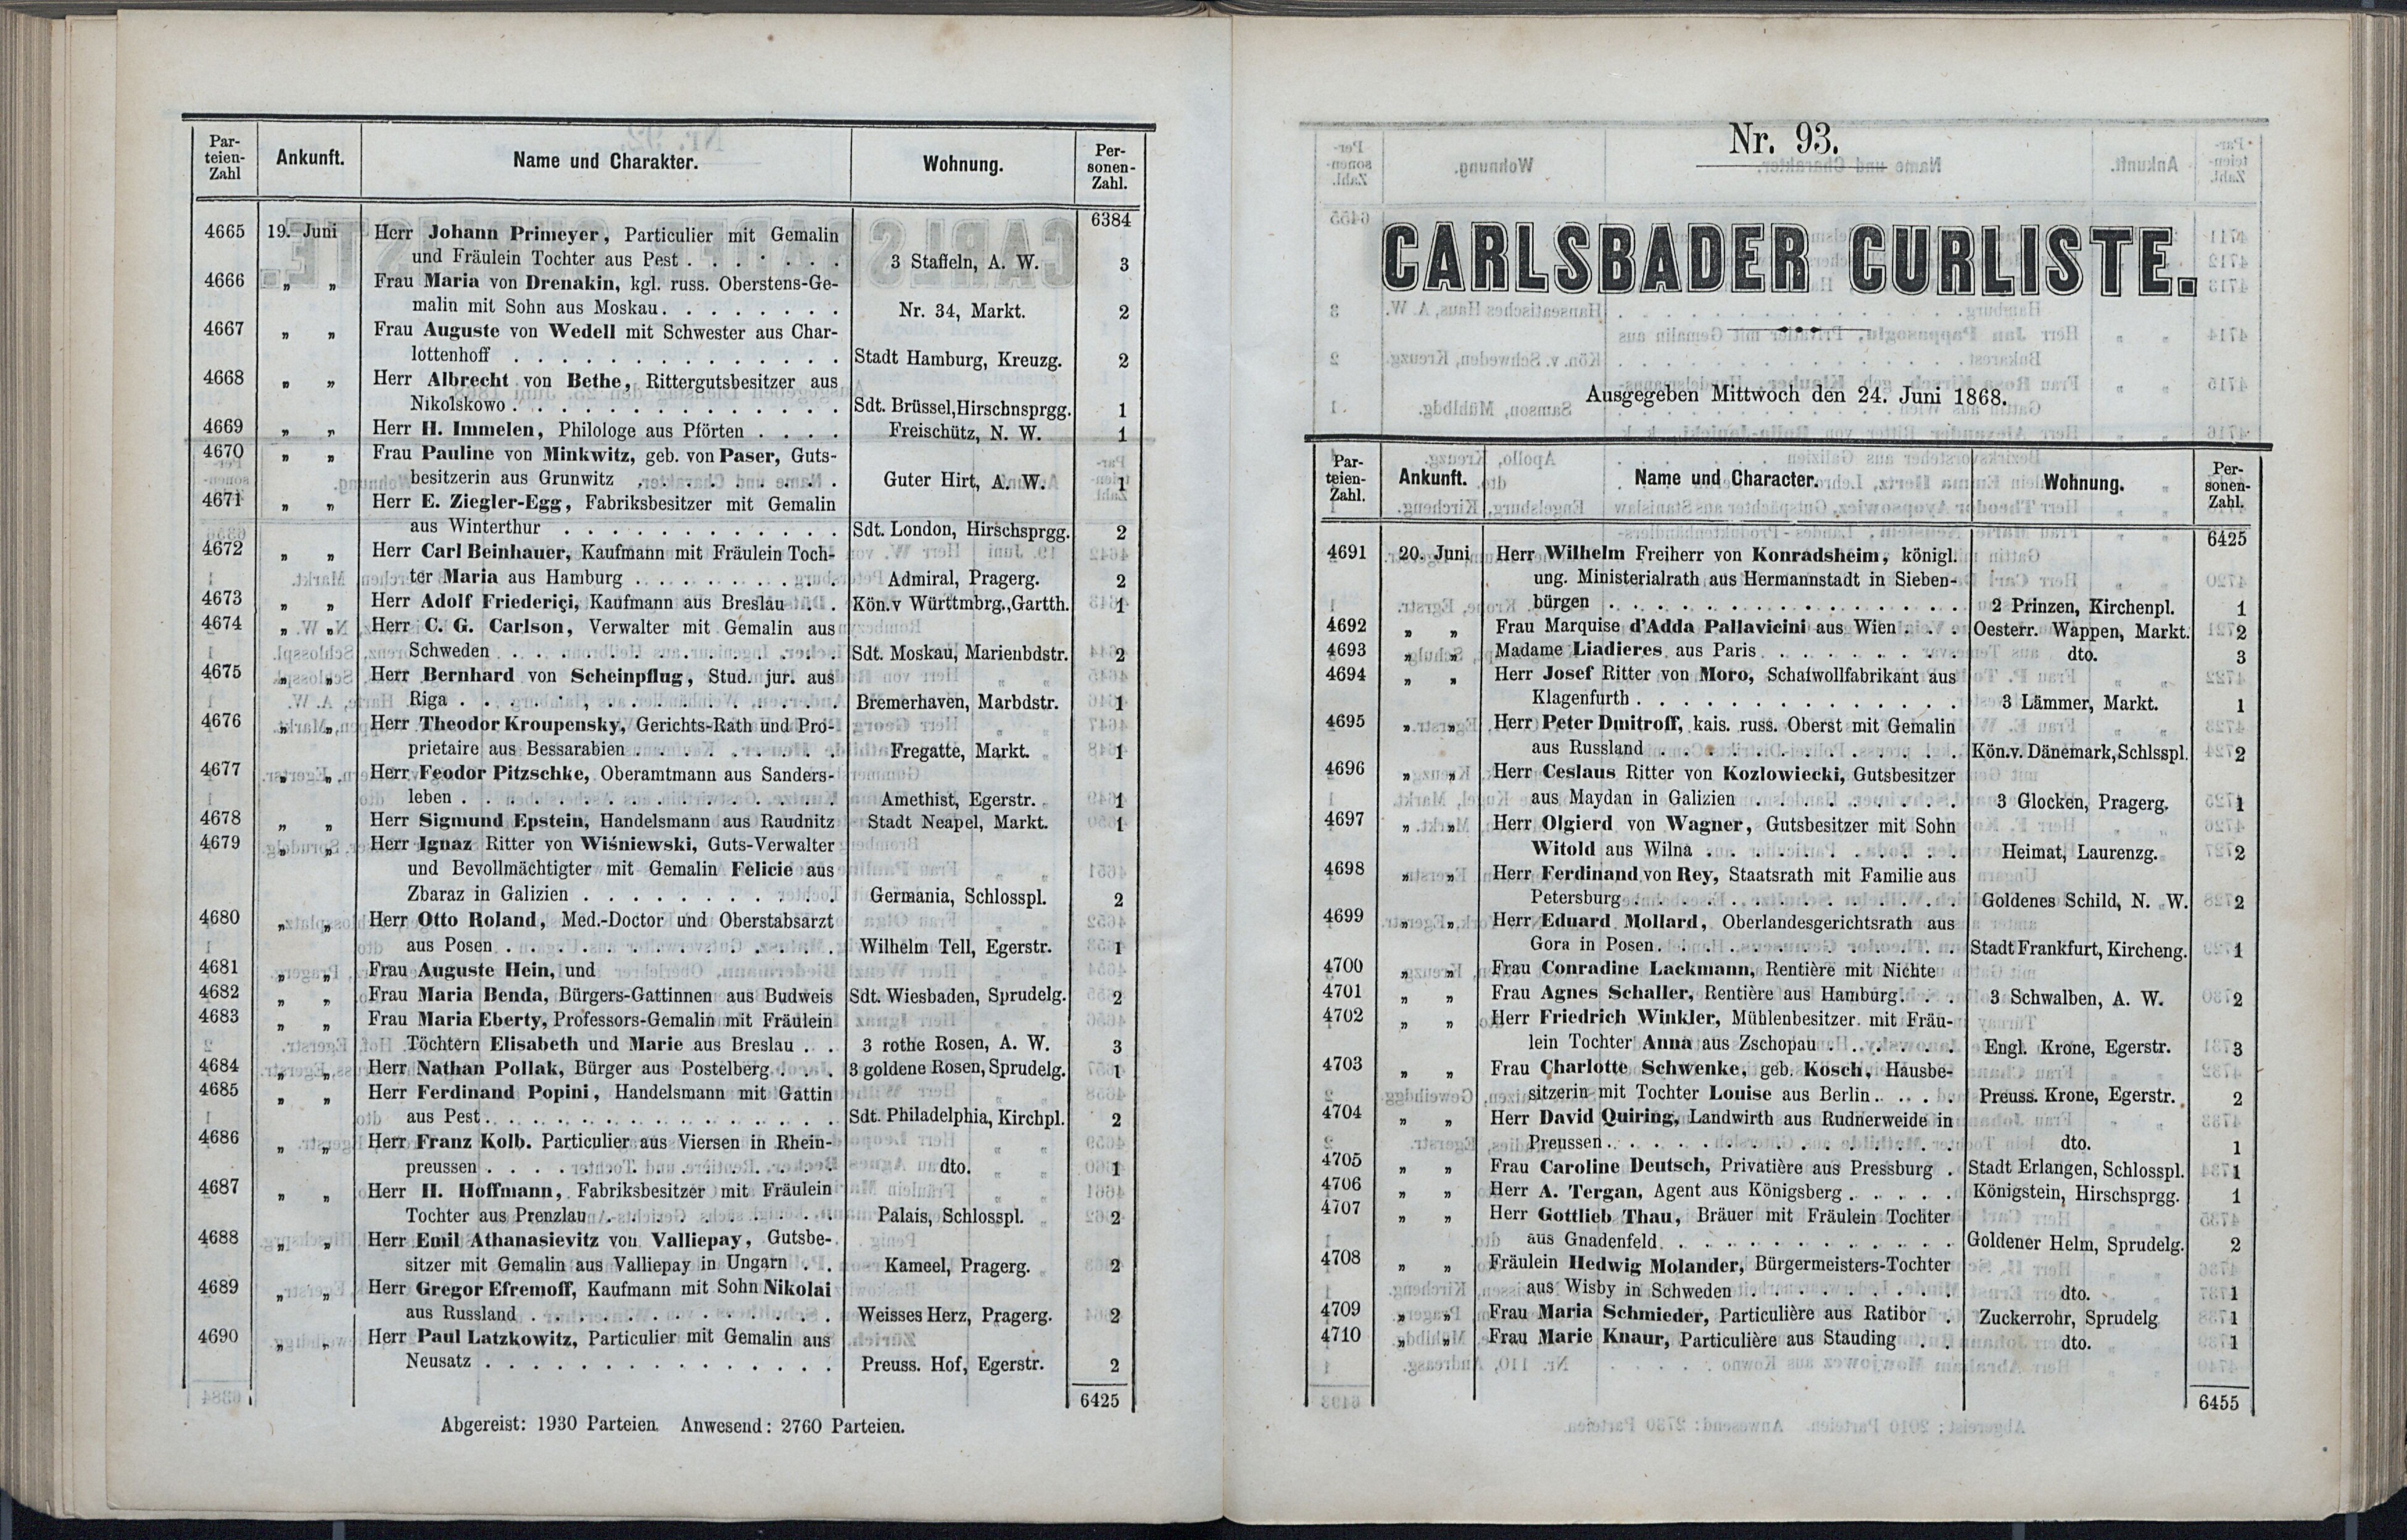 Par-
teien-
Zahl
Ankunft.
Name und Charakter.
Wohnung.
Per-
sonen-
Zahl.
6384
4665 19. Juni Herr Johann Primeyer, Particulier mit Gemalin
und Fräulein Tochter aus Pest . . . . . . . 3 Staffeln, A. W. 3
4666 „ „ Frau Maria von Drenakin, kgl. russ. Oberstens-Ge-
malin mit Sohn aus Moskau. . . . . . . . Nr. 34, Markt. 2
4667 „ „ Frau Auguste von Wedell mit Schwester aus Char-
lottenhoff . . . . . . . . . . . . . . Stadt Hamburg, Kreuzg. 2
4668 „ „ Herr Albrecht von Bethe, Rittergutsbesitzer aus
Nikolskowo . . . . . . . . . . . . . . Sdt. Brüssel, Hirschnsprgg. 1
4669 „ „ Herr H. Immelen, Philologe aus Pförten . . . . Freischütz, N. W. 1
4670 „ „ Frau Pauline von Minkwitz, geb. von Paser, Guts-
besitzerin aus Grunwitz . . . . . . . . . Guter Hirt, A. W. 1
4671 „ „ Herr E. Ziegler-Egg, Fabriksbesitzer mit Gemalin
aus Winterthur . . . . . . . . . . . . Sdt. London, Hirschsprgg. 2
4672 „ „ Herr Carl Beinhauer, Kaufmann mit Fräulein Toch-
ter Maria aus Hamburg . . . . . . . . . Admiral, Pragerg. 2
4673 „ „ Herr Adolf Friederiçi, Kaufmann aus Breslau . . . Kön. v Württmbrg., Gartth. 1
4674 „ „ Herr C. G. Carlson, Verwalter mit Gemalin aus
Schweden . . . . . . . . . . . . . . Sdt. Moskau, Marienbdstr. 2
4675 „ „ Herr Bernhard von Scheinpflug, Stud. jur. aus
Riga . . . . . . . . . . . . . . . . Bremerhaven, Marbdstr. 1
4676 „ „ Herr Theodor Kroupensky, Gerichts-Rath und Pro-
prietaire aus Bessarabien . . . . . . . . . Fregatte, Markt. 1
4677 „ „ Herr Feodor Pitzschke, Oberamtmann aus Sanders-
leben . . . . . . . . . . . . . . . . Amethist, Egerstr. 1
4678 „ „ Herr Sigmund Epstein, Handelsmann aus Raudnitz Stadt Neapel, Markt. 1
4679 „ „ Herr Ignaz Ritter von Wiśniewski, Guts-Verwalter
und Bevollmächtigter mit Gemalin Felicie aus
Zbaraz in Galizien . . . . . . . . . . . Germania, Schlosspl. 2
4680 „ „ Herr Otto Roland, Med.-Doctor und Oberstabsarzt
aus Posen . . . . . . . . . . . . . . Wilhelm Tell, Egerstr. 1
4681 „ „ Frau Auguste Hein, und
4682 „ „ Frau Maria Benda, Bürgers-Gattinnen aus Budweis Sdt. Wiesbaden, Sprudelg. 2
4683 „ „ Frau Maria Eberty, Professors-Gemalin mit Fräulein
Töchtern Elisabeth und Marie aus Breslau . . 3 rothe Rosen, A. W. 3
4684 „ „ Herr Nathan Pollak, Bürger aus Postelberg . . . 3 goldene Rosen, Sprudelg. 1
4685 „ „ Herr Ferdinand Popini, Handelsmann mit Gattin
aus Pest . . . . . . . . . . . . . . . Sdt. Philadelphia, Kirchpl. 2
4686 „ „ Herr Franz Kolb. Particulier aus Viersen in Rhein-
preussen . . . . . . . . . . . . . . . dto. 1
4687 „ „ Herr H. Hoffmann, Fabriksbesitzer mit Fräulein
Tochter aus Prenzlau . . . . . . . . . . Palais, Schlosspl. 2
4688 „ „ Herr Emil Athanasievitz von Valliepay, Gutsbe-
sitzer mit Gemalin aus Valliepay in Ungarn . . Kameel, Pragerg. 2
4689 „ „ Herr Gregor Efremoff, Kaufmann mit Sohn Nikolai
aus Russland . . . . . . . . . . . . . Weisses Herz, Pragerg. 2
4690 „ „ Herr Paul Latzkowitz, Particulier mit Gemalin aus
Neusatz . . . . . . . . . . . . . . . Preuss. Hof, Egerstr. 2
6425
Abgereist: 1930 Parteien. Anwesend: 2760 Parteien.
Nr. 93.
CARLSBADER CURLISTE.
Ausgegeben Mittwoch den 24. Juni 1868.
Par-
teien-
Zahl.
Ankunft.
Name und Character.
Wohnung.
Per-
sonen-
Zahl.
6425
4691 20. Juni Herr Wilhelm Freiherr von Konradsheim, königl.
ung. Ministerialrath aus Hermannstadt in Sieben-
bürgen . . . . . . . . . . . . . . . 2 Prinzen, Kirchenpl. 1
4692 „ „ Frau Marquise d'Adda Pallavicini aus Wien . . . Oesterr. Wappen, Markt. 2
4693 „ „ Madame Liadieres aus Paris . . . . . . . . . dto. 3
4694 „ „ Herr Josef Ritter von Moro, Schafwollfabrikant aus
Klagenfurth . . . . . . . . . . . . . . 3 Lämmer, Markt. 1
4695 „ „ Herr Peter Dmitroff, kais. russ. Oberst mit Gemalin
aus Russland . . . . . . . . . . . . . Kön. v. Dänemark, Schlsspl. 2
4696 „ „ Herr Ceslaus Ritter von Kozlowiecki, Gutsbesitzer
aus Maydan in Galizien . . . . . . . . . 3 Glocken, Pragerg. 1
4697 „ „ Herr Olgierd von Wagner, Gutsbesitzer mit Sohn
Witold aus Wilna . . . . . . . . . . . Heimat, Laurenzg. 2
4698 „ „ Herr Ferdinand von Rey, Staatsrath mit Familie aus
Petersburg . . . . . . . . . . . . . . Goldenes Schild, N. W. 2
4699 „ „ Herr Eduard Mollard, Oberlandesgerichtsrath aus
Gora in Posen. . . . . . . . . . . . . Stadt Frankfurt, Kircheng. 1
4700 „ „ Frau Conradine Lackmann, Rentière mit Nichte
4701 „ „ Frau Agnes Schaller, Rentière aus Hamburg. . . 3 Schwalben, A. W. 2
4702 „ „ Herr Friedrich Winkler, Mühlenbesitzer mit Fräu-
lein Tochter Anna aus Zschopau . . . . . . Engl. Krone, Egerstr. 3
4703 „ „ Frau Charlotte Schwenke, geb. Kosch, Hausbe-
sitzerin mit Tochter Louise aus Berlin . . . . Preuss. Krone, Egerstr. 2
4704 „ „ Herr David Quiring, Landwirth aus Rudnerweide in
Preussen . . . . . . . . . . . . . . . dto. 1
4705 „ „ Frau Caroline Deutsch, Privatière aus Pressburg . Stadt Erlangen, Schlosspl. 1
4706 „ „ Herr A. Tergan, Agent aus Königsberg . . . . . Königstein, Hirschsprgg. 1
4707 „ „ Herr Gottlieb Thau, Bräuer mit Fräulein Tochter
aus Gnadenfeld. . . . . . . . . . . . . Goldener Helm, Sprudelg. 2
4708 „ „ Fräulein Hedwig Molander, Bürgermeisters-Tochter
aus Wisby in Schweden . . . . . . . . . dto. 1
4709 „ „ Frau Maria Schmieder, Particulière aus Ratibor . Zuckerrohr, Sprudelg 1
4710 „ „ Frau Marie Knaur, Particulière aus Stauding . . dto. 1
6455